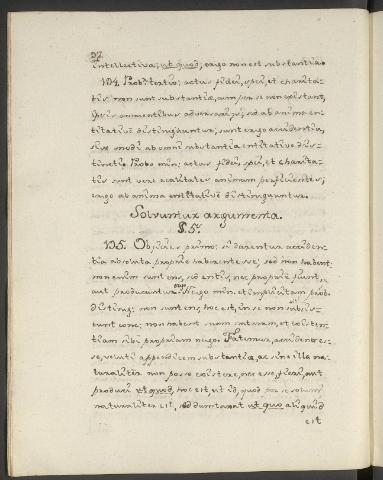 92
intellectiva, ut quod; ergo non est substantia.
104. Prob. tertio: actus fidei, spei, et charita-
tis non sunt substantia, cum per se non existant,
ipsis annuentibus adversariis, sed ab anima en-
titativè distinguuntur; sunt ergo accidentia,
sive modi ab omni substantia entitative dis-
tincti. Probo min: actus fidei, spei, et charita-
tis sunt vere realitates animam perficientes;
ergo ab anima entitativè distinguuntur.
Solvuntur argumenta.
§. 5.
105. Objicies primo: si darentur acciden-
tia absoluta propriè haberent esse; sed non habent:
non enim sunt ens, sed entis, nec propriè fiunt,
aut producuntur: ergo. Nego min. et implicitam prob.
disting: non sunt ens, hoc est, in se non subsis-
tunt conc: non habent suam naturam, et existen-
tiam sibi propriam nego. Fatemur, accidens es-
se, veluti appendicem substantiæ, ac sine illa na-
turaliter non posse existere, nec esse, fieri, aut
produci ut quod, hoc est, ut id, quod per se solum
naturaliter est, sed dumtaxat ut quo aliquid
est